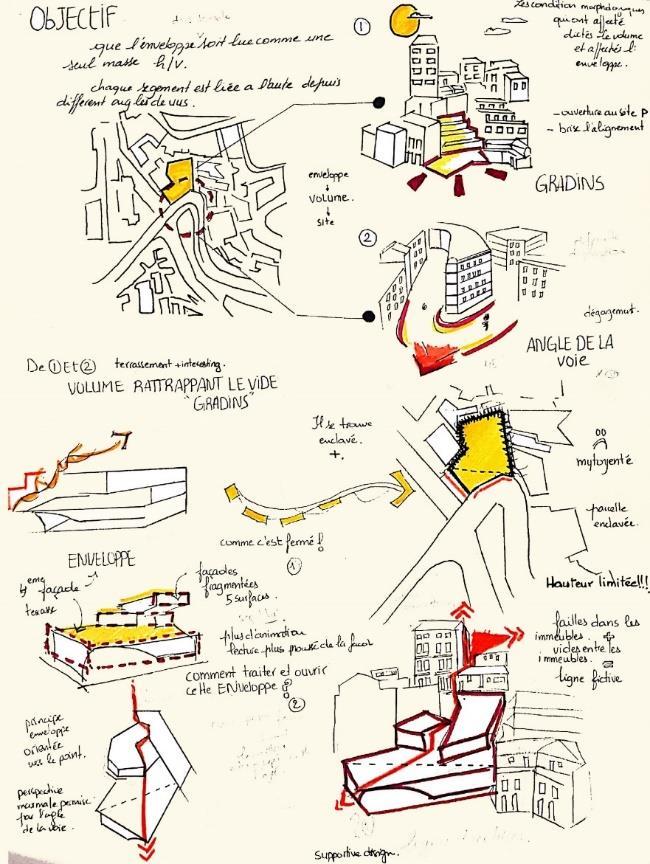 OBJECTIF
que l'enveloppe soit lue comme une
seul masse h/v.
chaque segement est liée a l'aute depuis
different angles de vus.
①
Les condition morphologiques
qui ont affecté
dictés le volume
et affectés l'
enveloppe.
- ouverture au site P
- brise l'alignement
GRADINS
enveloppe
↓
VOLUME.
↓
site
②
dégagement.
ANGLE DE LA
VOIE
De ① Et ② terrassement + interesting.
VOLUME RATTRAPPANT LE VIDE
"GRADINS"
Il se trouve
enclavé.
+.
mytoyenté
parcelle
enclavée.
Hauteur limitée!!!
comme c'est fermé !
①
ENVELOPPE
4 eme façade
terasse
façades
fragmentées
5 surfaces.
plus d'animation
lecture plus poussé de la facad
comment traiter et ouvrir
cette ENVeloppe
②
failles dans les
immeubles. +
vides entre les
immeubles. =
ligne fictive
principe
enveloppe
orientée
vers le point.
perspective
maximale permise
par l'angle
de la voie.
supportive design.